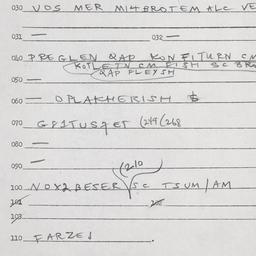 030 VOS MER MI4BROTEM ALC VE
031 — 032 —
040 PREGLEN QAP KON FITURN CN
KOTLETN CM FISH SC BRA
QAP FLEYSH
050 —
060 — OPLAKHERISH $
070 G821TUS7ET (249 (268
080 —
090 —
(210
100 NOX2BESER SC TSUM/AM
101
102
103
110 FARZEI .